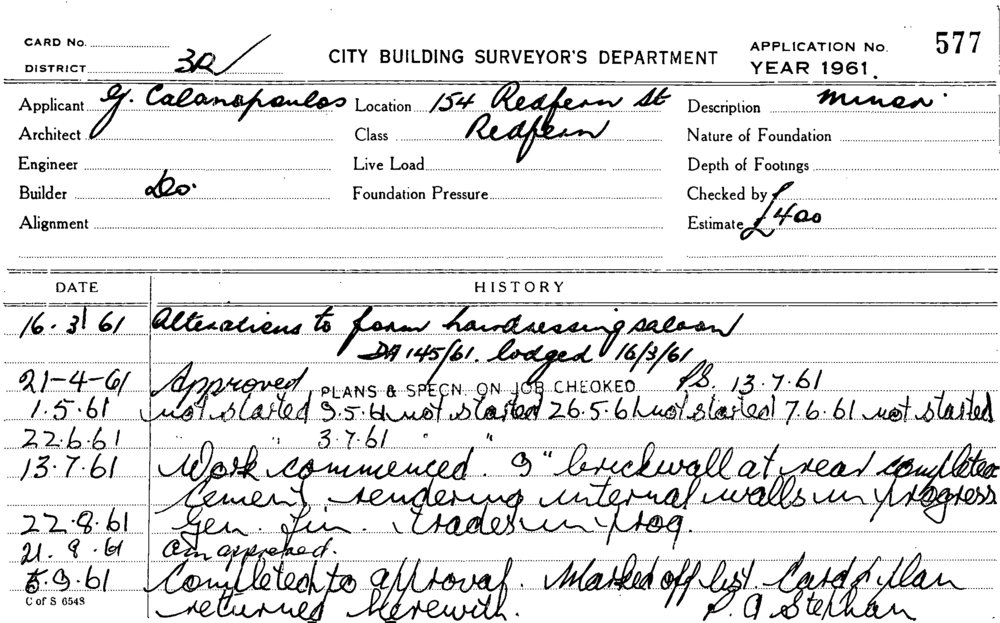 CARD No.
DISTRICT 3R
CITY BUILDING SURVEYOR'S DEPARTMENT
APPLICATION No. 577
YEAR 1961.
Applicant G. Calanopoulos Location 154 Redfern St Description Minor
Architect Class Redfern Nature of Foundation
Engineer Live Load Depth of Footings
Builder Do. Foundation Pressure Checked by
Alignment Estimate £400
DATE HISTORY
16.3.61 Alterations to form hairdressing saloon
DA 145/61. lodged 16/3/61
21-4-61 Approved PLANS & SPECN. ON JOB CHECKED P.S. 13.7.61
1.5.61 not started 9.5.61 not started 26.5.61 not started 7.6.61 not started
22.6.61 " " 3.7.61 " "
13.7.61 Work commenced. 9" brickwall at rear completed
Cement rendering internal walls in progress
22.8.61 Gen. Fin. trades in prog.
21.8.61 approved.
5.9.61 Completed to approval. Marked off list. Card & plan
C of S 6548 returned herewith. P. A Stephan